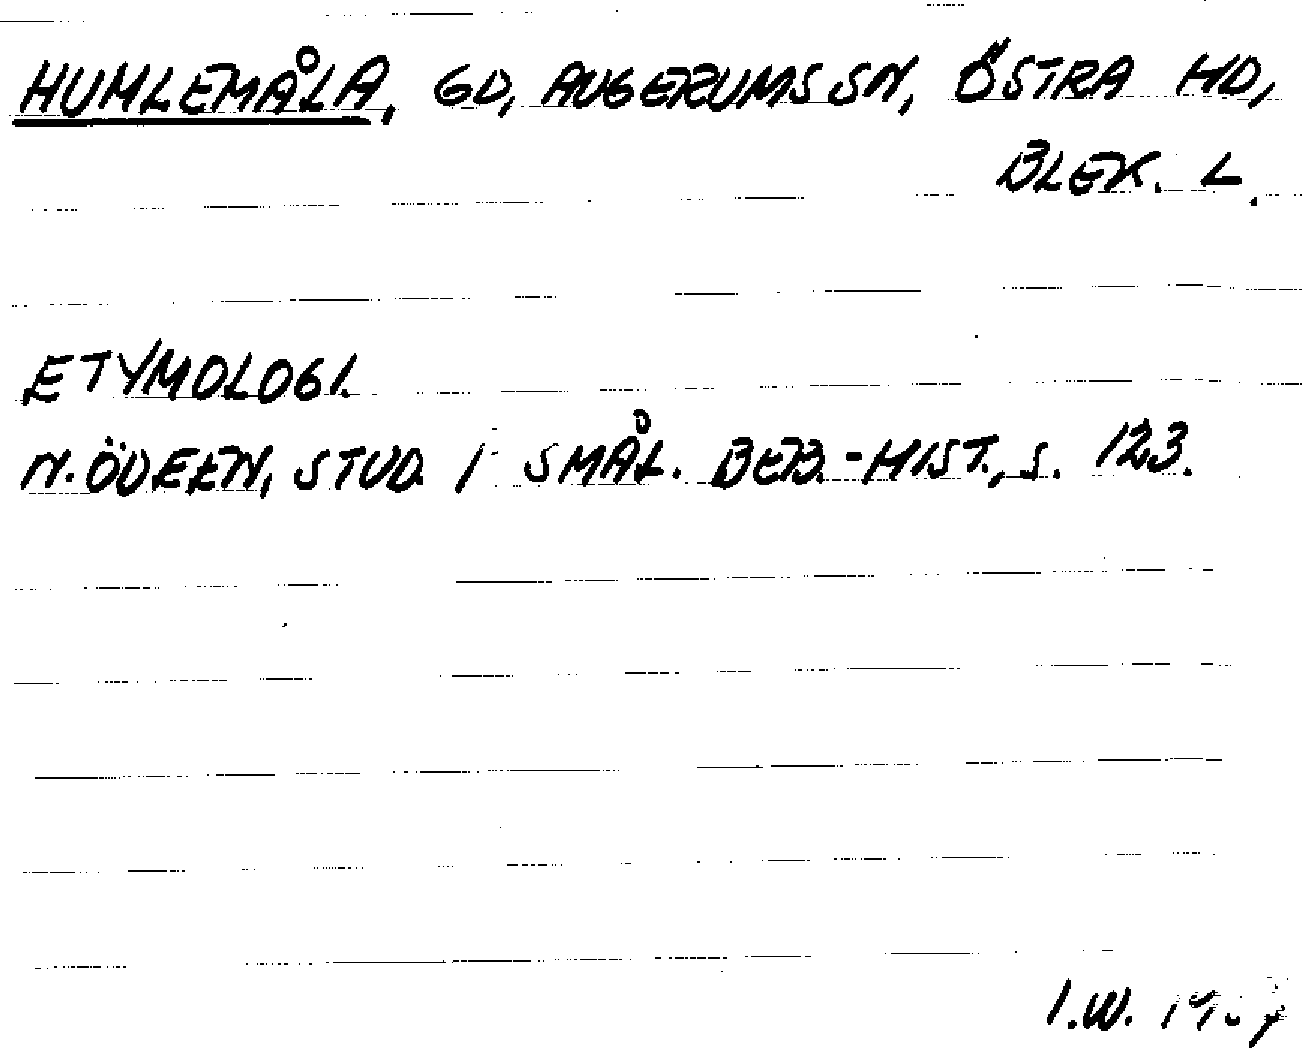 HUMLEMÅLA, GD, AUGERUMS SN, ÖSTRA HD,
BLEK. L.
ETYMOLOGI.
N. ÖDEEN, STUD. I SMÅL. BEB.-HIST., S. 123.
I.W.